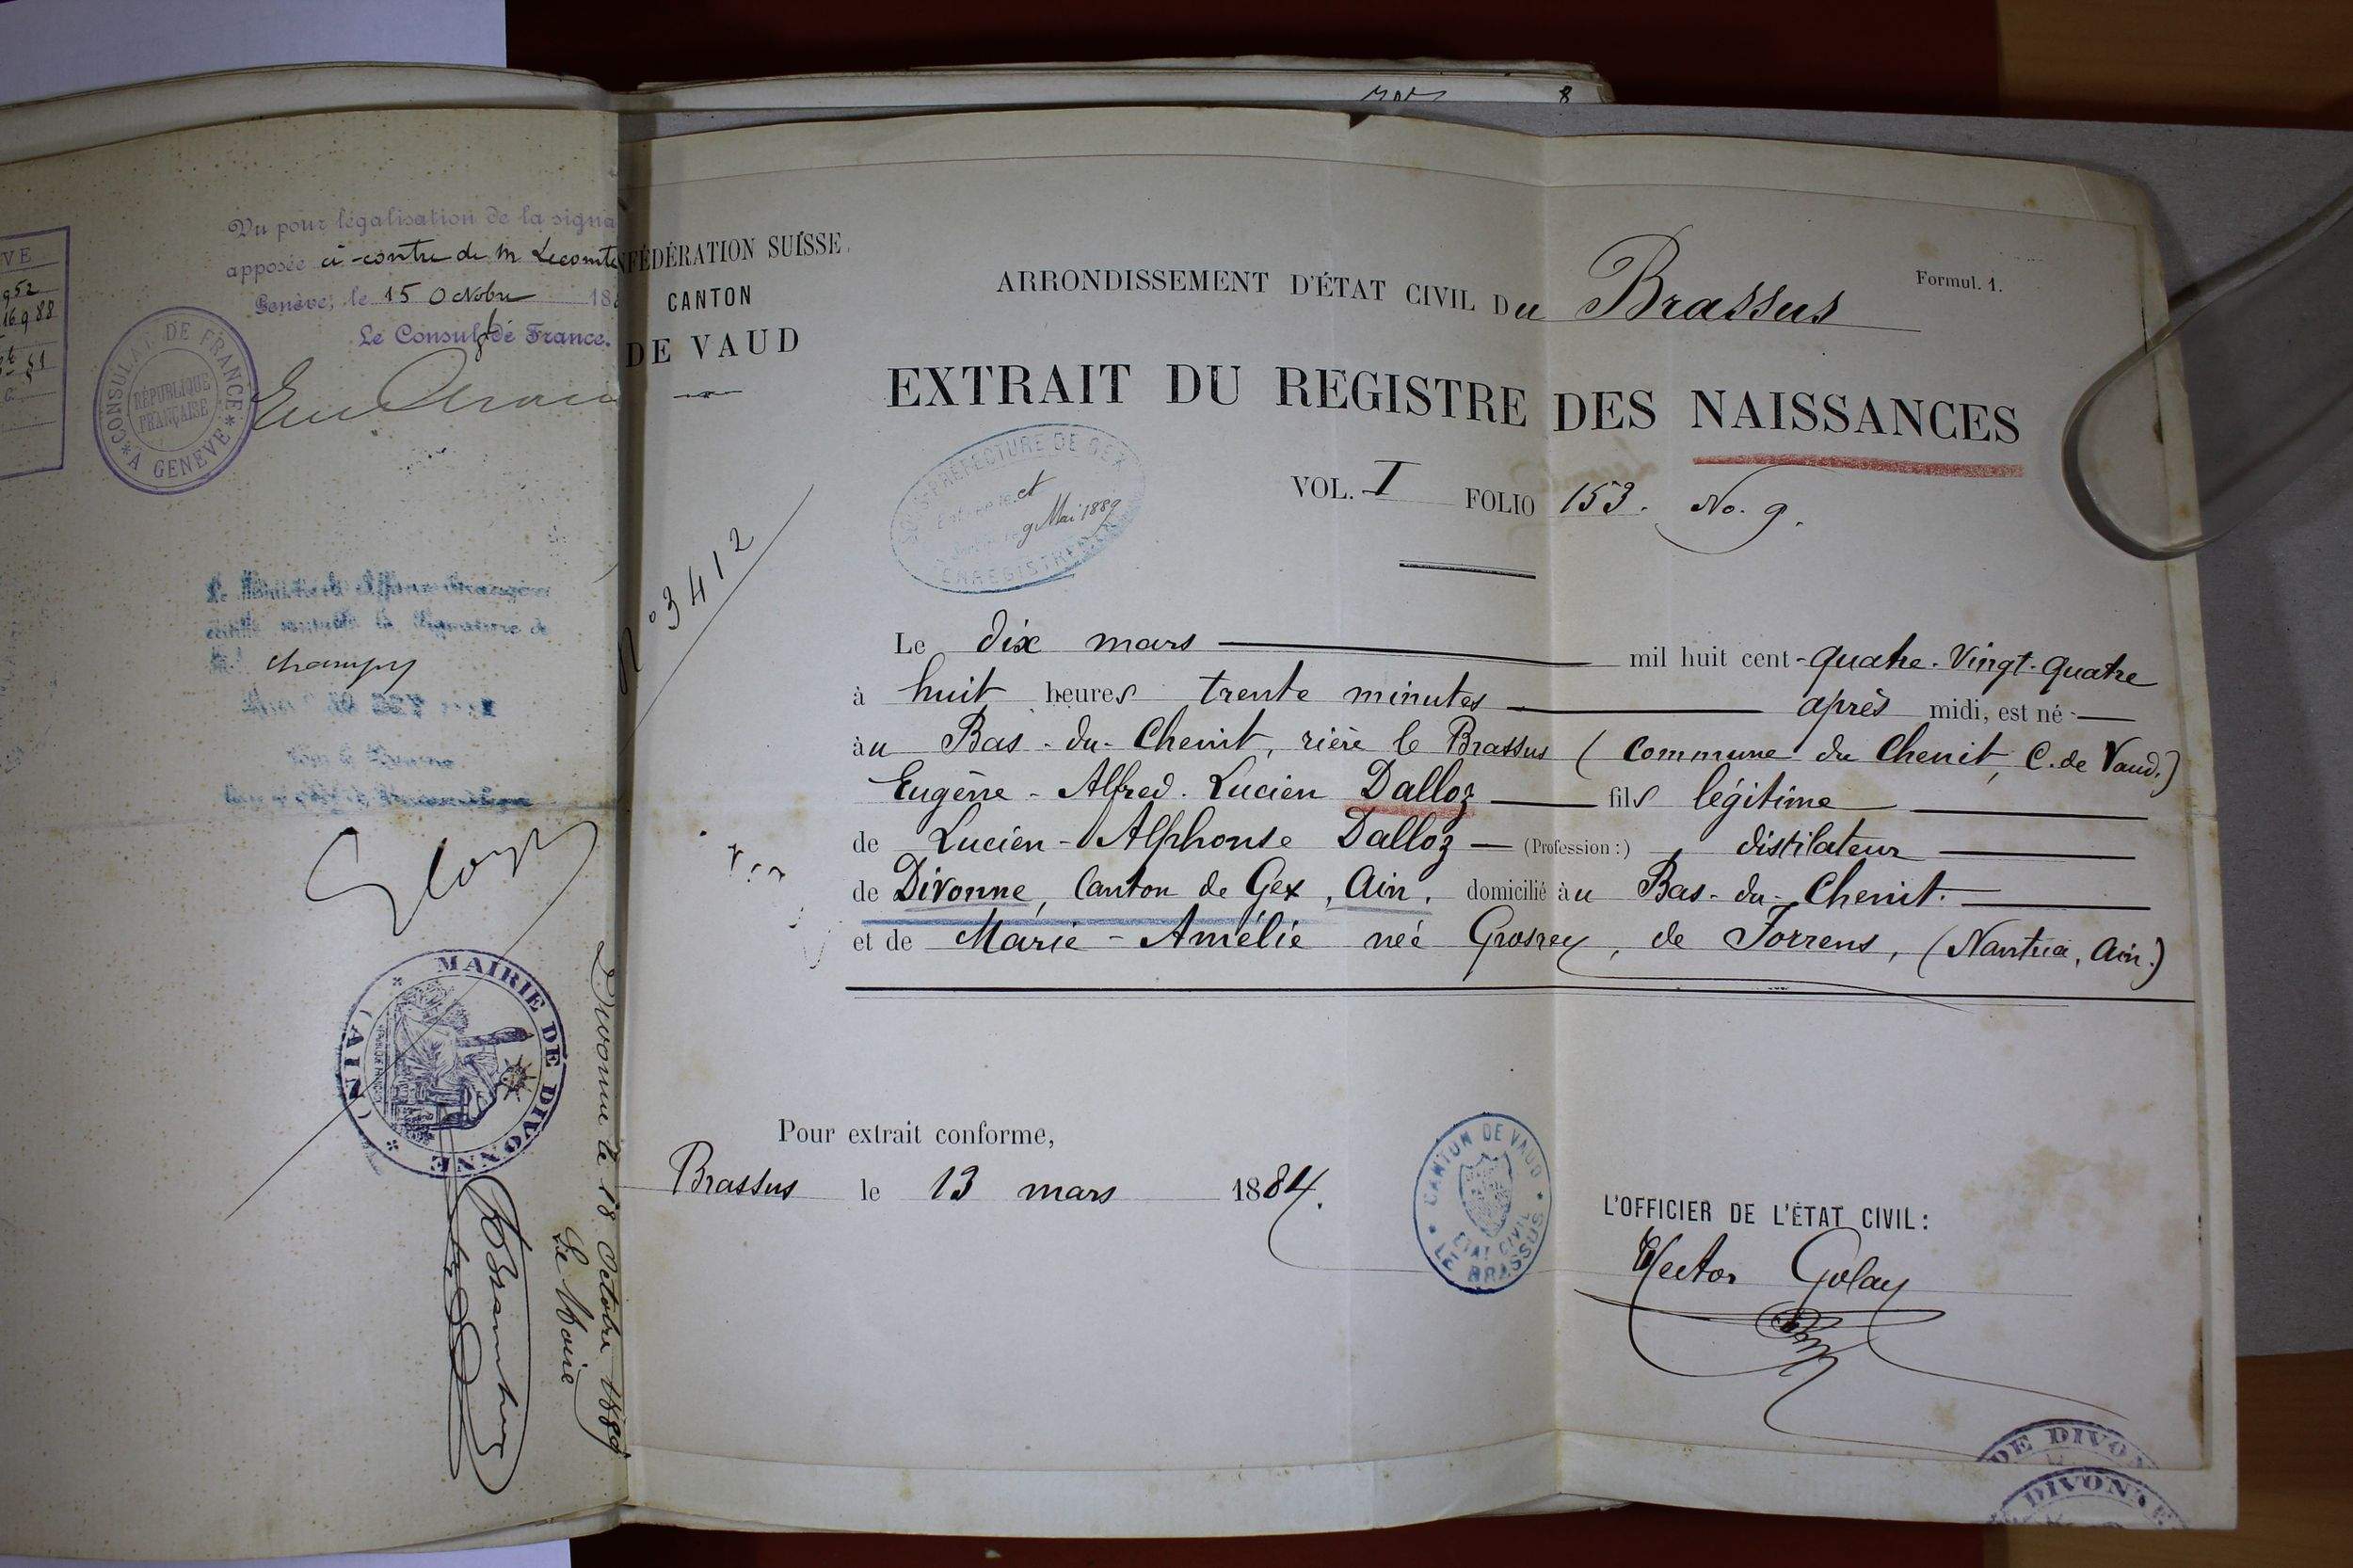 Vu pour légalisation de la signa
apposée ci-contre de M Lecomte
Genève, le 15 Octobre 188
Le Consul de France.
CONSULAT DE FRANCE
RÉPUBLIQUE
FRANÇAISE
A GENÈVE
VE
952
16 9 88
Champy
MAIRIE DE DIVONNE
(AIN)
Divonne le 18 Octobre 1889
Le Maire
NFÉDÉRATION SUISSE.
CANTON
DE VAUD
No 3412
Formul. 1.
ARRONDISSEMENT D'ÉTAT CIVIL Du Brassus
EXTRAIT DU REGISTRE DES NAISSANCES
SOUS-PRÉFECTURE DE GEX
et
9 Mai 1889
ENREGISTRE
VOL. I FOLIO 153. No. 9.
Le dix mars mil huit cent-quatre-vingt-quatre
à huit heures trente minutes après midi, est né
àu Bas-du-Chenit, rière le Brassus (Commune du Chenit, C. de Vaud.)
Eugène-Alfred-Lucien Dalloz fils légitime
de Lucien-Alphonse Dalloz (Profession:) distilateur
de Divonne, Canton de Gex, Ain, domicilié àu Bas-du-Chenit.
et de Marie-Amélie née Grosrey, de Sorrens, (Nantua, Ain.)
Pour extrait conforme,
Brassus le 13 mars 1884.
CANTON DE VAUD
ETAT CIVIL
LE BRASSUS
L'OFFICIER DE L'ÉTAT CIVIL:
Hector Golay
DE DIVON
DIVONNE